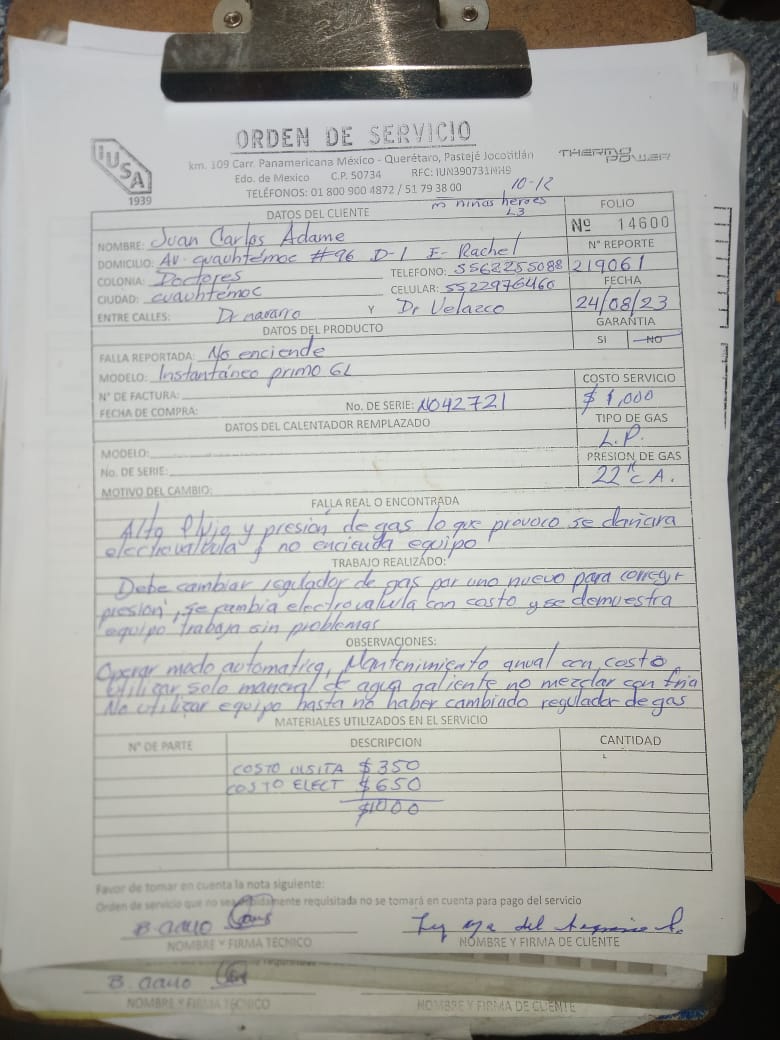 ORDEN DE SERVICIO
IUSA
1939
km. 109 Carr. Panamericana México - Querétaro, Pastejé Jocotitlán
Edo. de Mexico C.P. 50734 RFC: IUN390731MH9
TELÉFONOS: 01 800 900 4872 / 51 79 38 00
THERMO POWER
10-12
m niñas heroes
L3
DATOS DEL CLIENTE
FOLIO
Nº 14600
NOMBRE: Juan Carlos Adame
N° REPORTE
DOMICILIO: Av. cuauhtémoc #96 D-1 I- Rachel
219061
COLONIA: Doctores TELEFONO: 5562255088
FECHA
CIUDAD: cuauhtémoc CELULAR: 5522976460
24/08/23
ENTRE CALLES: Dr navarro Y Dr Velazco
GARANTIA
DATOS DEL PRODUCTO
SI NO
FALLA REPORTADA: No enciende
MODELO: Instantáneo primo 6L
COSTO SERVICIO
N° DE FACTURA:
$ 1,000
FECHA DE COMPRA: No. DE SERIE: NO42721
TIPO DE GAS
DATOS DEL CALENTADOR REMPLAZADO
L.P.
MODELO:
PRESION DE GAS
No. DE SERIE:
22" C A.
MOTIVO DEL CAMBIO:
FALLA REAL O ENCONTRADA
Alto flujo y presión de gas lo que provoco se dañara
electrovalbula y no encienda equipo
TRABAJO REALIZADO:
Debe cambiar regulador de gas por uno nuevo para
presion, se cambia electrovalvula con costo y se demuestra
equipo trabaja sin problemas
OBSERVACIONES:
Operar modo automatico, Mantenimiento anual con costo
Utilizar solo maneral de agua caliente no mezclar con fria
No utilizar equipo hasta no haber cambiado regulador de gas
MATERIALES UTILIZADOS EN EL SERVICIO
N° DE PARTE DESCRIPCION CANTIDAD
COSTO VISITA $350
COSTO ELECT $650
$1000
Favor de tomar en cuenta la nota siguiente:
Orden de servicio que no sea debidamente requisitada no se tomará en cuenta para pago del servicio
NOMBRE Y FIRMA TECNICO
NOMBRE Y FIRMA DE CLIENTE
NOMBRE Y FIRMA TÉCNICO
NOMBRE Y FIRMA DE CLIENTE